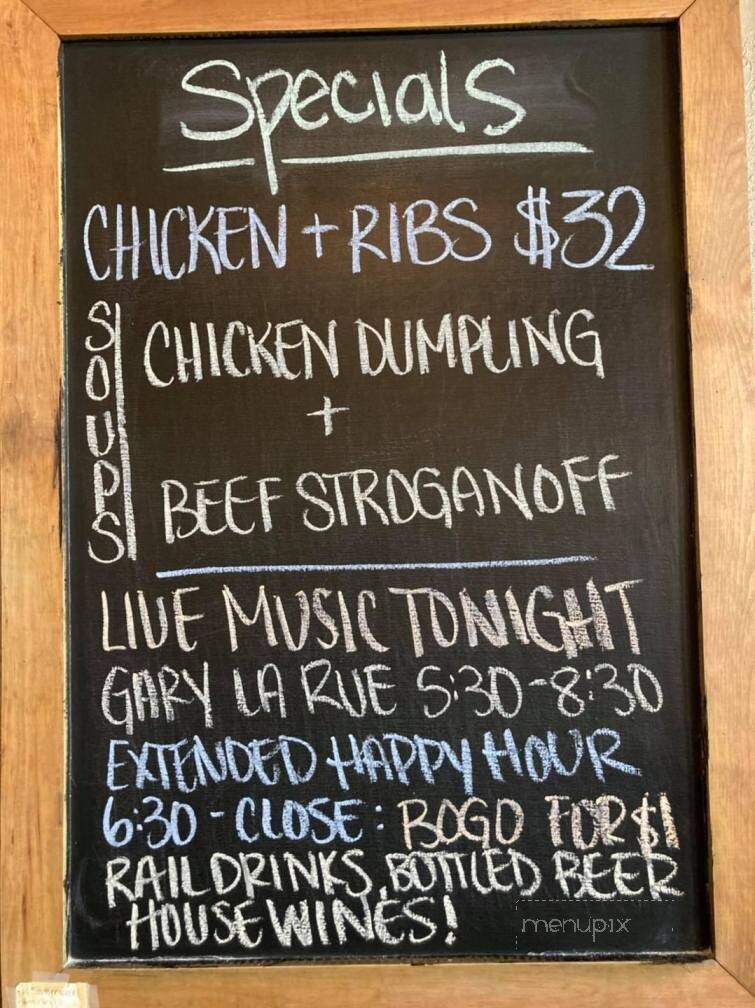 Specials
CHICKEN + RIBS $32
SOUPS
CHICKEN DUMPLING
+
BEEF STROGANOFF
LIVE MUSIC TONIGHT
GARY LA RUE 5:30-8:30
EXTENDED HAPPY HOUR
6:30 - CLOSE: BOGO FOR $1
RAIL DRINKS, BOTTLED BEER
HOUSE WINES!
menupix